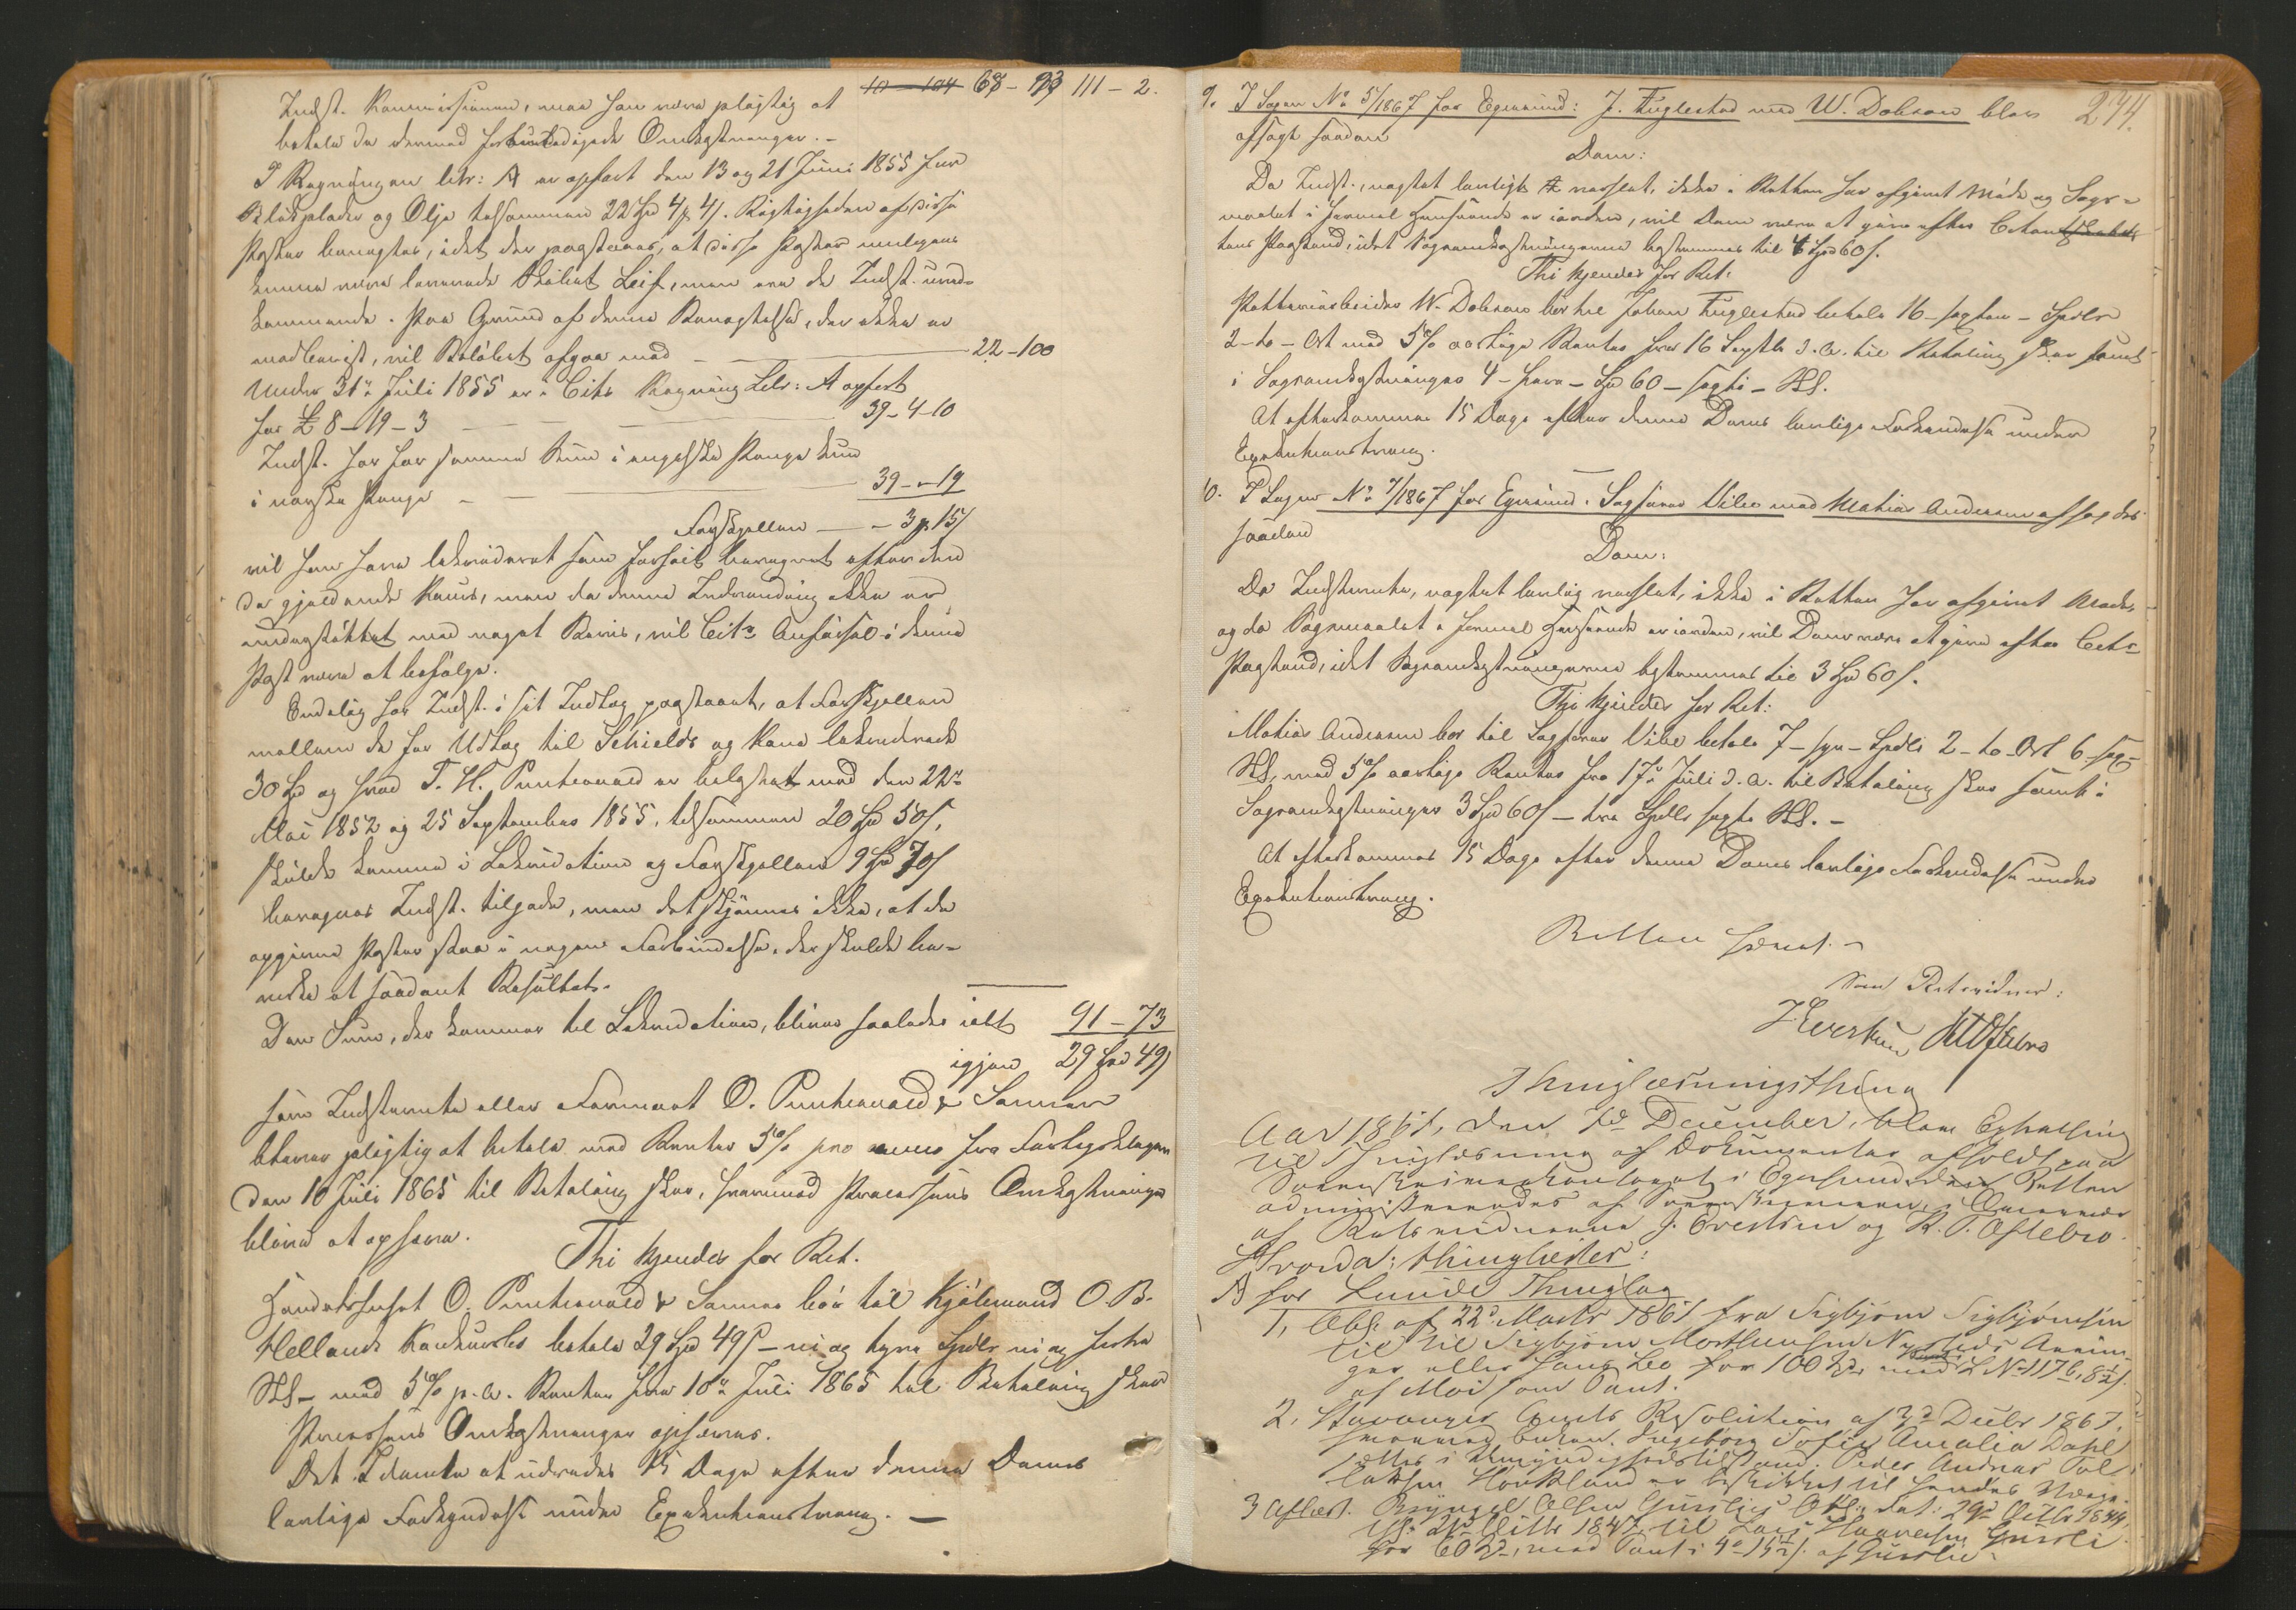 10-104 68-93 111-2.
Indst. Kommissionen, maa han være pligtig at
betale de dermed forbundne Omkostninger.
I Regningen litr: A er opført den 13 og 21 Juni 1855 for
Blikplader og Olje tilsammen 22 Spd 4 # 4/. Rigtigheden af disse
Poster benegtes, idet der paastaaes, at disse Poster muligens
kunne være leverede Skibet Leif, men ere de Indst. uved-
kommende. Paa Grund af denne Benegtelse, der ikke er
modbevist, vil Beløbet afgaa med 22-100
Under 31te Juli 1855 er i Cits Regning Litr: A opført
for £ 8-19-3 39-4-10
Indst. har for samme Sum i engelske Penge kun
i norske Penge 39-"-19
Forskjellen - 3 # 15/
vil han have likvideret som forhøit beregnet efter den
da gjældende Kurs, men da denne Indvending ikke er
understøttet med noget Bevis, vil Cits Anførsel i denne
Post være at befølge.
Endelig har Indst. i sit Indlæg paastaaet, at Forskjellen
mellem de for Udlæg til Schields og Kane likviderede
30 Spd og hvad T. H. Puntervold er belastet med den 22de
Mai 1852 og 25 September 1855, tilsammen 20 Spd 50/,
skulde komme i Likvidation og Forskjellen 9 Spd 70/
beregnes Indst. tilgode, men det skjønnes ikke, at de
opgivne Poster staa i nogen Forbindelse, der skulde be-
virke et saadant Resultat.
Den Sum, der kommer til Likvidation, bliver saaledes ialt 91-73
igjen 29 Spd 49/
som Indstevnte eller Firmaet O. Puntervold & Sønner
bliver pligtig at betale med Renter 5% pro anno fra Forligsklagen
den 10 Juli 1865 til Betaling sker, hvorimod Processens Omkostninger
blive at ophæve.
Thi kjendes for Ret.
Handelshuset O. Puntervold & Sønner bør til Kjøbmand O. B.
Hellands Konkursbo betale 29 Spd 49 ß - ni og tyve Spdlr ni og førti
Sk - med 5% p. a. Renter fra 10de Juli 1865 til Betaling sker
Processens Omkostninger ophæves.
Det Idømte at udredes 15 Dage efter denne Doms
lovlige Forkyndelse under Exekutionstvang. -
274.
9. I Sagen No 5/1867 for Egersund: J. Fuglestad mod W. Dobson blev
afsagt saadan
Dom:
Da Indst., uagtet lovligt varslet, ikke i Retten har afgivet Møde og Sags-
maalet i formel Henseende er iorden, vil Dom være at give efter Citan
tens Paastand, idet Sagsomkostningerne bestemmes til 4 Spd 60/.
Thi kjendes for Ret:
Pottemagerarbeider W. Dobson bør til Johan Fuglestad betale 16 - sexten - Spdlr
2 - to - Ort med 5% aarlige Renter fra 16 Septbr d. A. til Betaling sker samt
i Sagsomkostninger 4 - fire - Spd 60 - sexti - Sk.
At efterkommes 15 Dage efter denne Doms lovlige Forkyndelse under
Exekutionstvang.
10. I Sagen No 7/1867 for Egersund. Sagfører Vibe mod Mathias Andersen afsagdes
saadan
Dom:
Da Indstevnte, uagtet lovlig varslet, ikke i Retten har afgivet Møde,
og da Sagsmaalet i formel Henseende er iorden, vil Dom være at give efter Cits
Paastand, idet Sagsomkostningerne bestemmes til 3 Spd 60/.
Thi kjendes for Ret:
Mathias Andersen bør til Sagfører Vibe betale 7 - syv - Spdlr 2 - to - Ort 6 - sex
Sk, med 5% aarlige Renter fra 17de Juli d. A. til Betaling sker samt i
Sagsomkostninger 3 Spd 60/ - tre Spdlr sexti Sk. -
At efterkommes 15 Dage efter denne Doms lovlige Forkyndelse under
Exekutionstvang.
Retten hævet. -
Som Retsvidner:
J Evertsen RTØstebrø
Thinglæsningsthing
Aar 1867, den 7de December, blev Extrathing
til Thinglæsning af Dokumenter afholdt paa
Sorenskriverkontoret i Egersund, Retten
administreredes af Sorenskriveren, i Overvær
af Retsvidnerne J. Evertsen og R. T. Østebrø.
Hvorda: thinglæstes:
A, for Lunde Thinglag
1, Obl. af 22de Marts 1867 fra Sigbjørn Sigbjørnsen
til til Sigbjørn Mortensen Nystads Arvin-
ger eller hans Bo for 100 Spd, med L No 117 b, 8½ /.
af Moi som Pant.
2, Stavanger Amts Resolution af 3de Decbr 1867,
hvorved Enken Ingeborg Sofie Amalia Dahl
sættes i Umyndighedstilstand. Peder Andreas Tol-
laksen Haukland er beskikket til hendes Værge.
3 Aflæst. Bryngel Olsen Gursli's Obl. dat: 29de Octbr 1844,
thl. 21de Octbr 1847 til Lars Haaversen Gursli
for 60 Spd, med Pant i 4 - 15½ /. af Gursli.